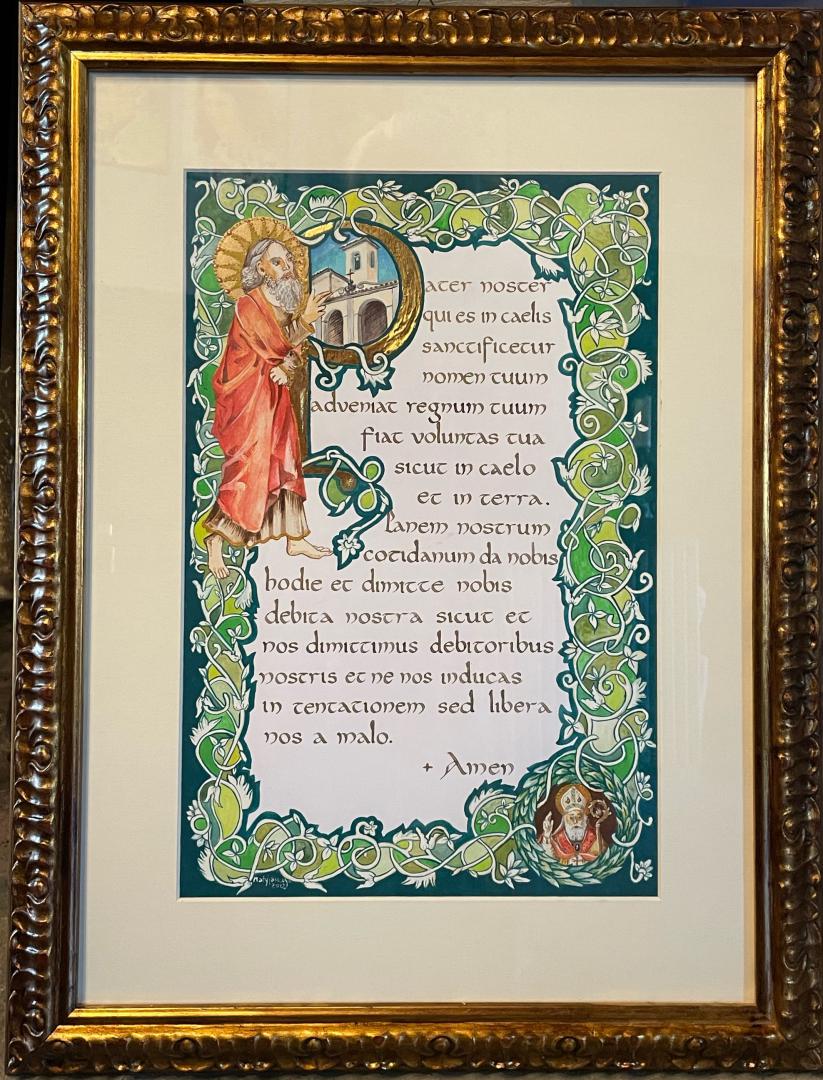 Pater noster
qui es in caelis
sanctificetur
nomen tuum
adveniat regnum tuum
fiat voluntas tua
sicut in caelo
et in terra.
Panem nostrum
cotidanum da nobis
hodie et dimitte nobis
debita nostra sicut et
nos dimittimus debitoribus
nostris et ne nos inducas
in tentationem sed libera
nos a malo.
+ Amen